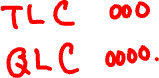 TLC 000
QLC 0000.